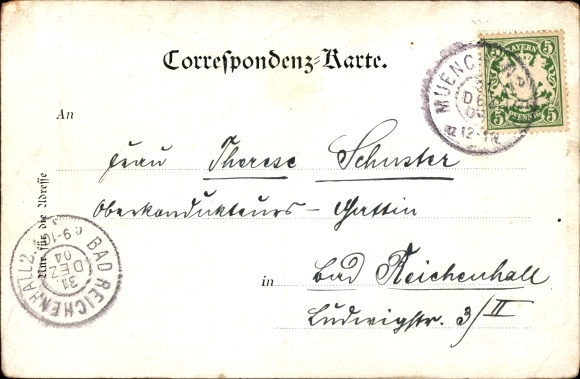 Correspondenz-Karte.
BAYERN
5 5
5 PFENNIG 5
MUENCHEN
DEZ
12-1N
An
Frau Therese Schuster
Oberkondukteurs-Gattin
in Bad Reichenhall
Ludwigstr. 3/II
Nur für die Adresse
BAD REICHENHALL 2.
31.
DEZ
04
9-10